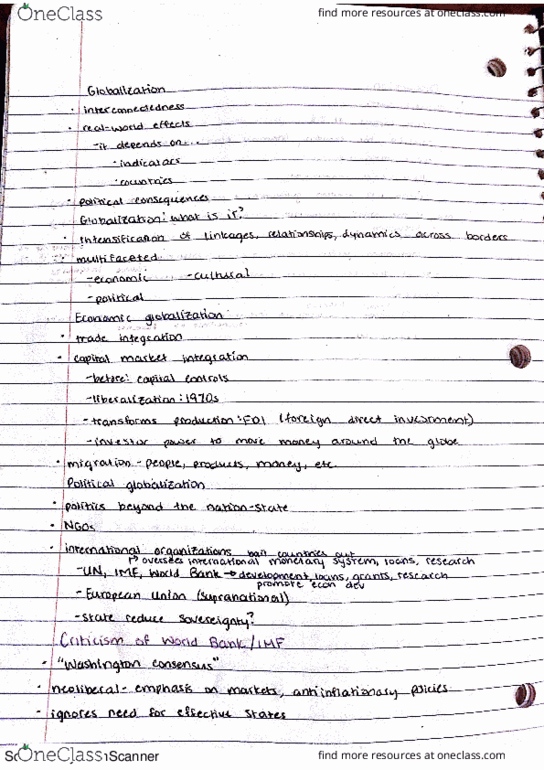 OneClass
find more resources at oneclass.com
Globalization
· interconnectedness
· real-world effects
-it depends on...
·indicators
·countries
· political consequences
Globalization: what is it?
· intensification of linkages, relationships, dynamics across borders
· multifaceted
-economic -cultural
-political
Economic globalization
· trade integration
· capital market integration
-before: capital controls
-liberalization: 1970s
-transforms production: FDI (foreign direct investment)
-investor power to move money around the globe
· migration - people, products, money, etc.
Political globalization
· politics beyond the nation-state
· NGOs
· international organizations bail countries out
↱ oversees international monetary system, loans, research
-UN, IMF, World Bank → development, loans, grants, research
promote econ dev
-European Union (supranational)
-state reduce sovereignty?
Criticism of World Bank/IMF
· "Washington consensus"
· neoliberal - emphasis on markets, antiinflationary policies
· ignores need for effective states
OneClass
Scanner
find more resources at oneclass.com